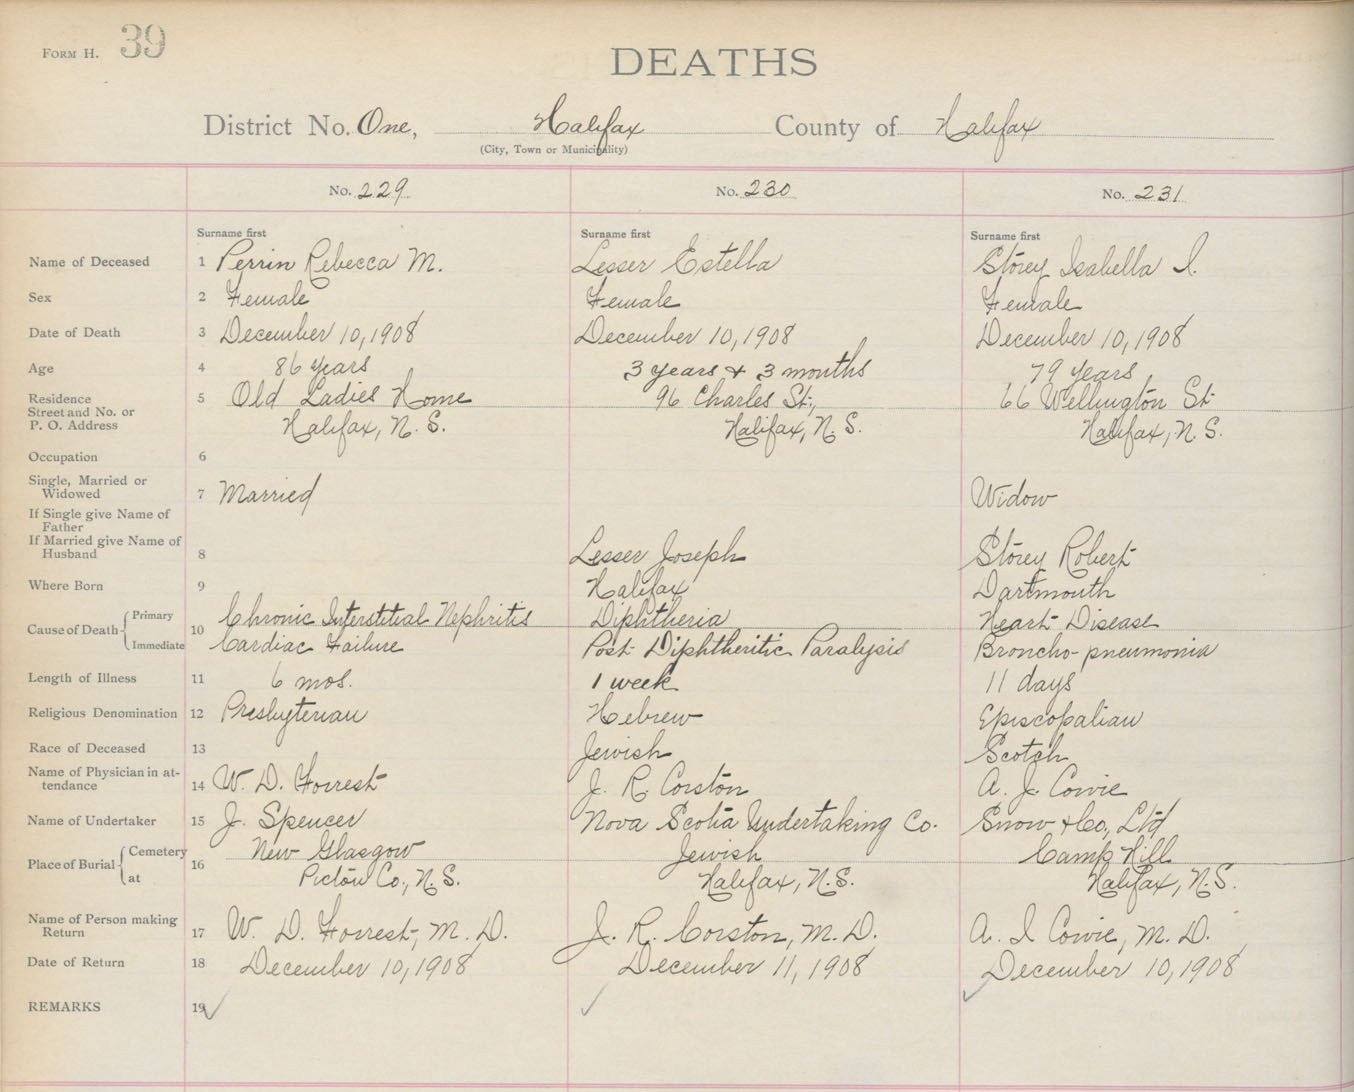 Form H. 39
DEATHS
District No. One, Halifax County of Halifax
(City, Town or Municipality)
No. 229 No. 230 No. 231
Surname first Surname first Surname first
Name of Deceased 1 Perrin Rebecca M. Lesser Estella Storey Isabella I.
Sex 2 Female Female Female
Date of Death 3 December 10, 1908 December 10, 1908 December 10, 1908
Age 4 86 years 3 years & 3 months 79 years
Residence 5 Old Ladies Home 96 Charles St., 66 Wellington St.
Street and No. or
P. O. Address Halifax, N. S. Halifax, N. S. Halifax, N. S.
Occupation 6
Single, Married or
Widowed 7 Married Widow
If Single give Name of
Father
If Married give Name of
Husband 8 Lesser Joseph Storey Robert
Where Born 9 Halifax Dartmouth
Cause of Death 10
Primary Chronic Interstitial Nephritis Diphtheria Heart Disease
Immediate Cardiac Failure Post Diphtheritic Paralysis Broncho-pneumonia
Length of Illness 11 6 mos. 1 week 11 days
Religious Denomination 12 Presbyterian Hebrew Episcopalian
Race of Deceased 13 Jewish Scotch
Name of Physician in at-
tendance 14 W. D. Forrest J. R. Corston A. J. Cowie
Name of Undertaker 15 J. Spencer Nova Scotia Undertaking Co. Snow & Co., Ltd
Place of Burial 16
Cemetery New Glasgow Jewish Camp Hill
at Pictou Co., N. S. Halifax, N. S. Halifax, N. S.
Name of Person making
Return 17 W. D. Forrest, M. D. J. R. Corston, M. D. A. I Cowie, M. D.
Date of Return 18 December 10, 1908 December 11, 1908 December 10, 1908
REMARKS 19